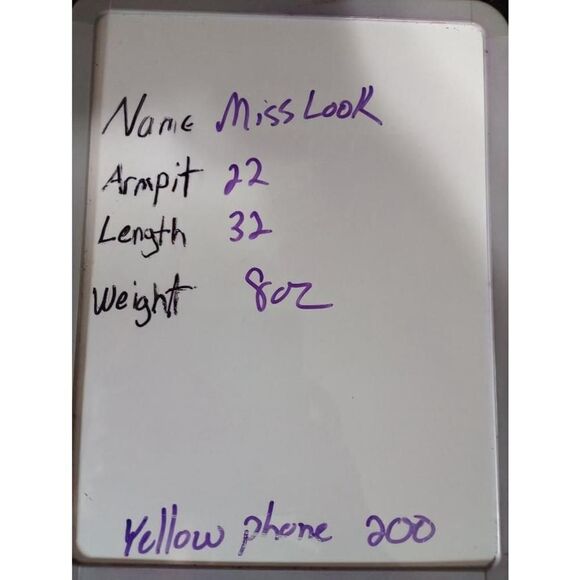 Name Miss Look
Armpit 22
Length 32
Weight 8oz
Yellow phone 200